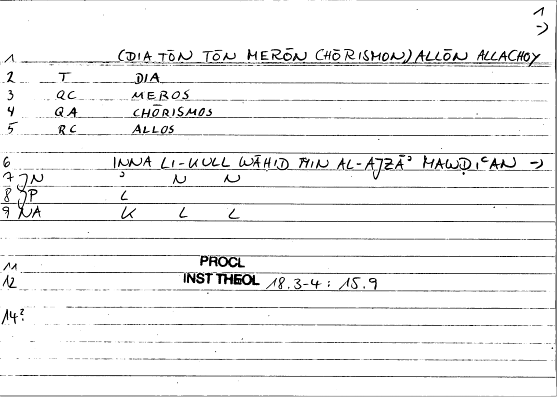 1
->
1 (DIA TŌN TŌN MERŌN CHŌRISMON) ALLŌN ALLACHOY
2 T DIA
3 QC MEROS
4 QA CHŌRISMOS
5 RC ALLOS
6 INNA LI-KULL WĀḤID MIN AL-AJZĀʾ MAWḌIʿAN ->
7 }N ʾ N N
8 }P L
9 NA K L L
11 PROCL
12 INST THEOL 18.3-4 : 15.9
14?